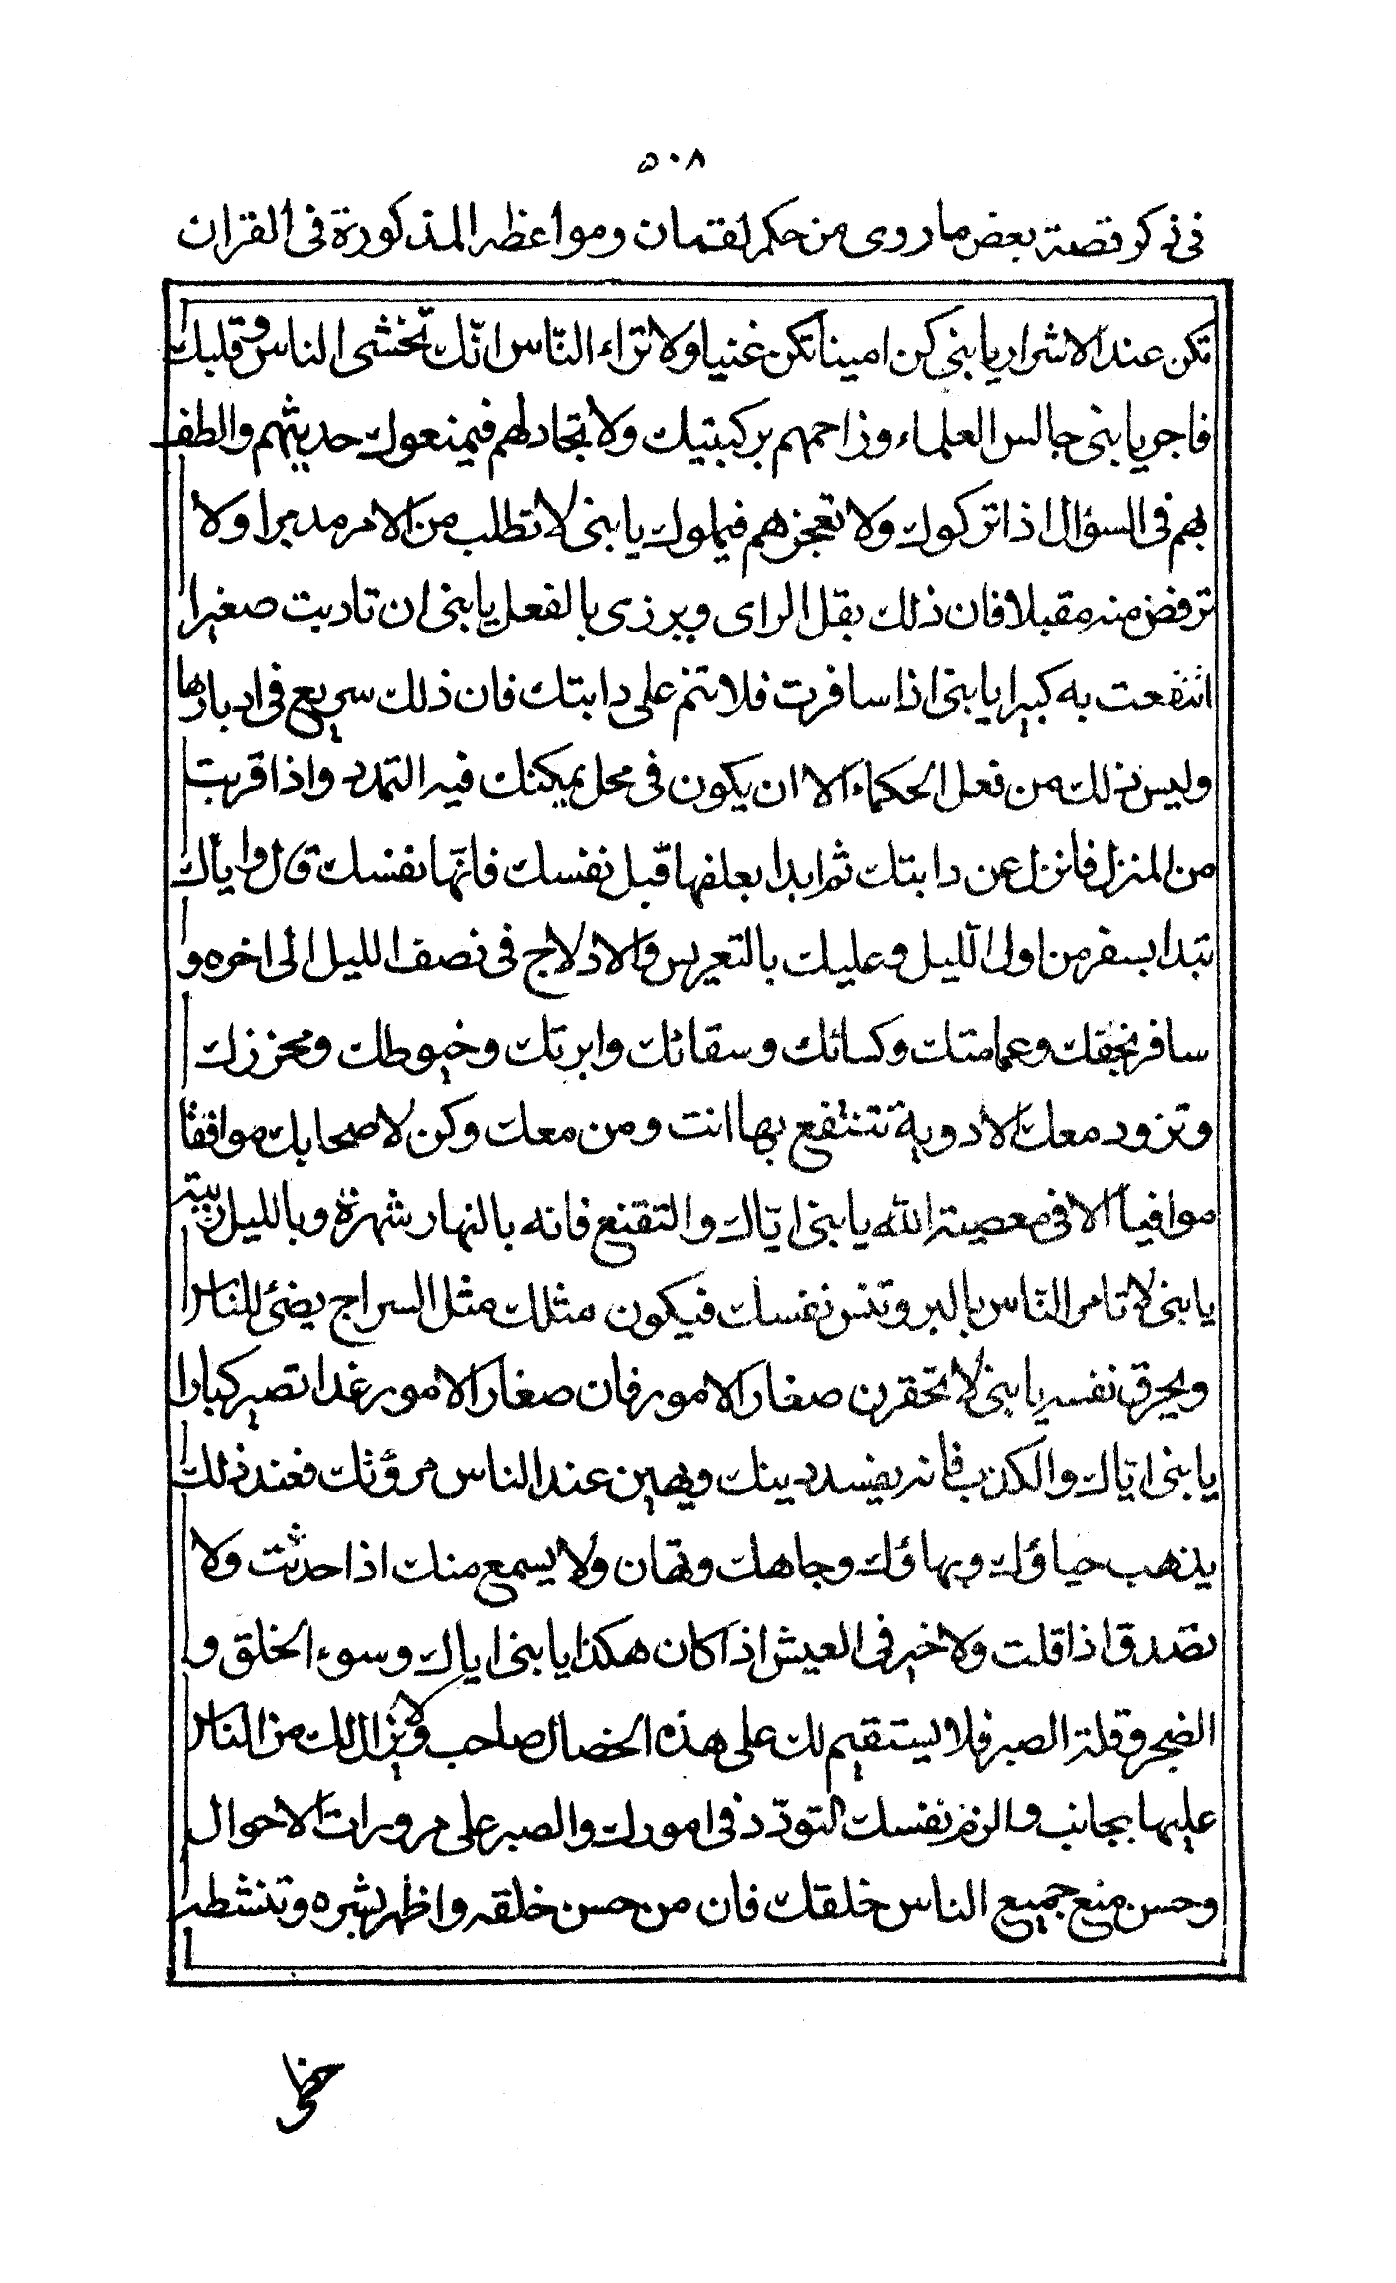 ٥٠٨
فى ذكر قصة بعض ما روى من حكم لقمان ومواعظه المذكورة فى القران
تكن عند الاشرار يا بنى كن امينا تكن غنيا ولا تراء النّاس انّك تخشى الناس وقلبك
فاجر يا بنى جالس العلماء وزاحمهم بركبتيك ولا تجادلهم فيمنعوك حديثهم والطف
بهم فى السؤال اذا تركوك ولا تعجزهم فيملوك يا بنى لا تطلب من الامر مدبرا ولا
ترفض منه مقبلا فان ذلك يقل الراى ويرزى بالفعل يا بنى ان تاديت صغيرا
انتفعت به كبيرا يا بنى اذا سافرت فلا تنم على دابتك فان ذلك سريع فى ادبارها
وليس ذلك من فعل الحكماء الا ان يكون فى محل يمكنك فيه التمدد واذا قربت
من المنزل فانزل عن دابتك ثم ابدا بعلفها قبل نفسك فانّها نفسك قال واياك
تبدا بسفر من اول اللّيل وعليك بالتعريس والادلاج فى نصف الليل الى اخره و
سافر بخفك وعمامتك وكسائك وسقائك وابرتك وخيوطك ومخرزك
وتزود معك الادوية تنتفع بها انت ومن معك وكن لاصحابك موافقا
موافيا الا فى معصية الله يا بنى ايّاك والتقنع فانه بالنهار شهرة وبالليل ريبة
يا بنى لا تامر النّاس بالبر وتنس نفسك فيكون مثلك مثل السراج يضئ للناس
ويحرق نفسه يا بنى لا تحقرن صغار الامور فان صغار الامور غدا تصير كبارا
يا بنى ايّاك والكذب فانه يفسد دينك ويهين عند الناس مروّتك فعند ذلك
يذهب حياؤك وبهاؤك وجاهك وتهان ولا يسمع منك اذا حدثت ولا
تصدق اذا قلت ولا خير فى العيش اذا كان هكذا يا بنى اياك وسوء الخلق و
الضجر وقلة الصبر فلا يستقيم لك على هذه الخصال صاحب ولا يزال لك من الناس
عليها بجانب والزم نفسك التودّد فى امورك والصبر على مرورات الاحوال
وحسن مع جميع الناس خلقك فان من حسن خلقه واظهر بشره وتنشطه